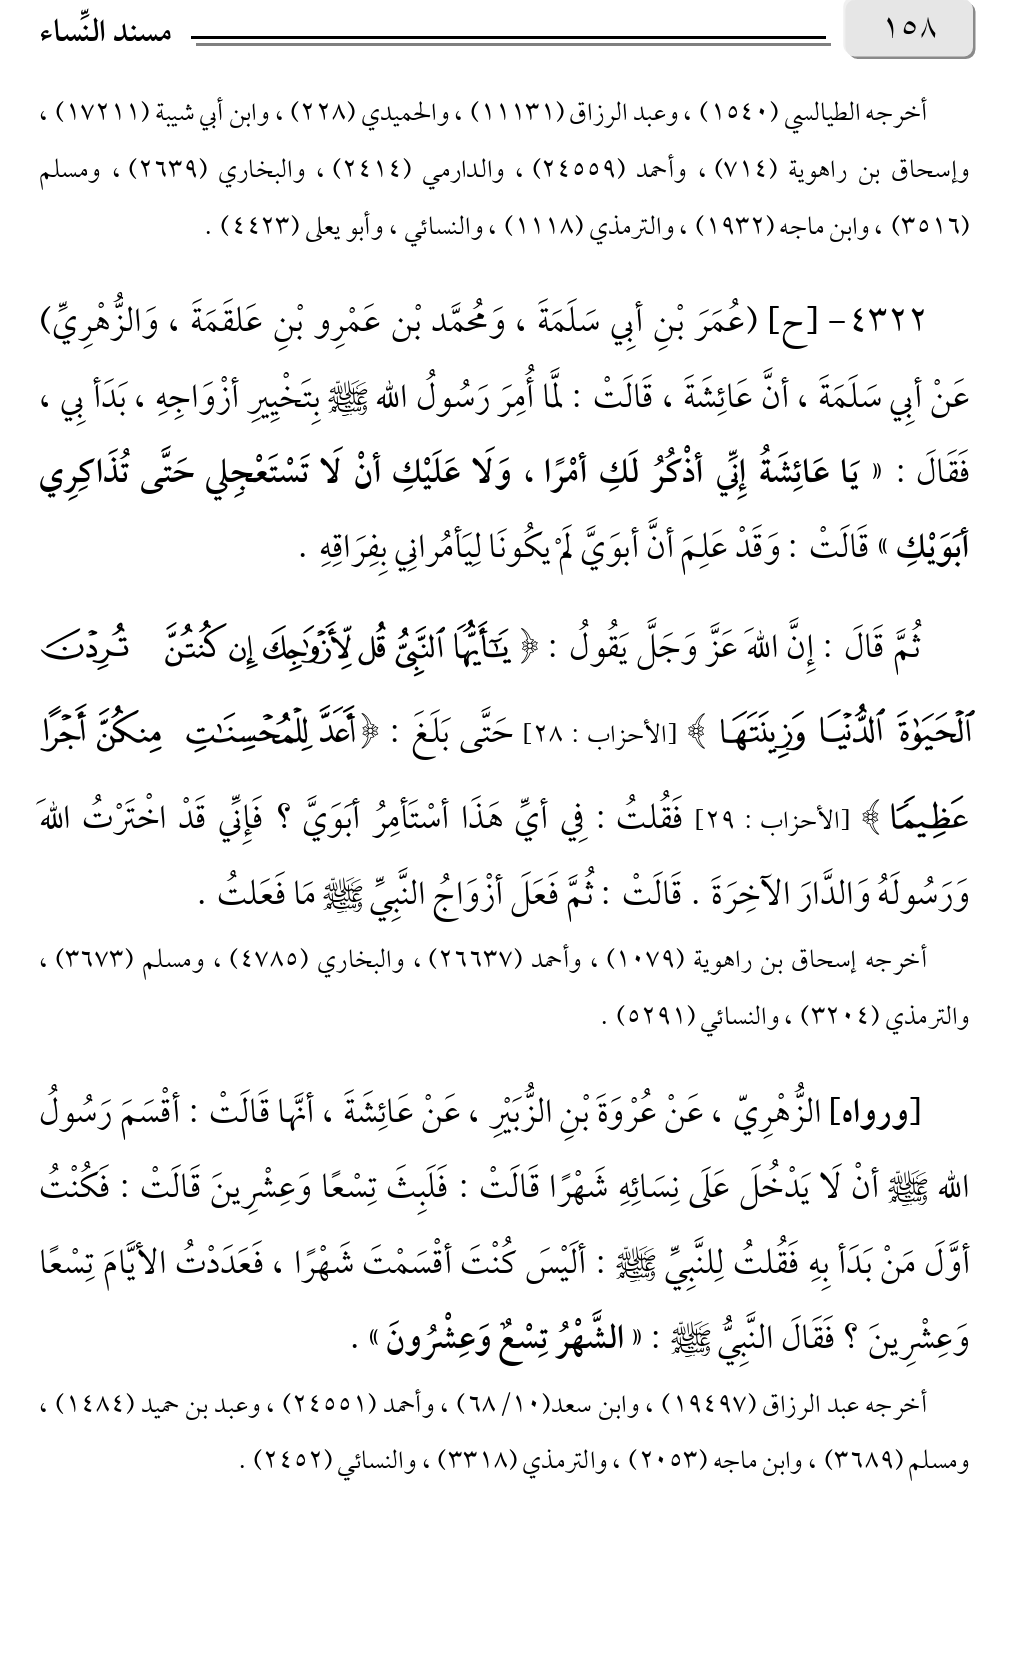 ١٥٨ مسند النِّساء
أخرجه الطيالسي (١٥٤٠) ، وعبد الرزاق (١١١٣١) ، والحميدي (٢٢٨) ، وابن أبي شيبة (١٧٢١١) ،
وإسحاق بن راهوية (٧١٤) ، وأحمد (٢٤٥٥٩) ، والدارمي (٢٤١٤) ، والبخاري (٢٦٣٩) ، ومسلم
(٣٥١٦) ، وابن ماجه (١٩٣٢) ، والترمذي (١١١٨) ، والنسائي ، وأبو يعلى (٤٤٢٣) .
٤٣٢٢- [ح] (عُمَرَ بْنِ أبِي سَلَمَةَ ، وَمُحَمَّد بْن عَمْرِو بْنِ عَلقَمَةَ ، وَالزُّهْرِيِّ)
عَنْ أبِي سَلَمَةَ ، أنَّ عَائِشَةَ ، قَالَتْ : لمَّا أُمِرَ رَسُولُ الله ﷺ بِتَخْيِيرِ أزْوَاجِهِ ، بَدَأ بِي ،
فَقَالَ : « يَا عَائِشَةُ إِنِّي أذْكُرُ لَكِ أمْرًا ، وَلَا عَلَيْكِ أنْ لَا تَسْتَعْجِلي حَتَّى تُذَاكِرِي
أبَوَيْكِ » قَالَتْ : وَقَدْ عَلِمَ أنَّ أبوَيَّ لَمْ يكُونَا لِيَأمُرانِي بِفِرَاقِهِ .
ثُمَّ قَالَ : إِنَّ اللهَ عَزَّ وَجَلَّ يَقُولُ : ﴿ يَٰٓأَيُّهَا ٱلنَّبِيُّ قُل لِّأَزْوَٰجِكَ إِن كُنتُنَّ تُرِدْنَ
ٱلْحَيَوٰةَ ٱلدُّنْيَا وَزِينَتَهَا ﴾ [الأحزاب : ٢٨] حَتَّى بَلَغَ : ﴿ أَعَدَّ لِلْمُحْسِنَٰتِ مِنكُنَّ أَجْرًا
عَظِيمًا ﴾ [الأحزاب : ٢٩] فَقُلتُ : فِي أيِّ هَذَا أسْتَأمِرُ أبَوَيَّ ؟ فَإِنِّي قَدْ اخْتَرْتُ اللهَ
وَرَسُولَهُ وَالدَّارَ الآخِرَةَ . قَالَتْ : ثُمَّ فَعَلَ أزْوَاجُ النَّبِيِّ ﷺ مَا فَعَلتُ .
أخرجه إسحاق بن راهوية (١٠٧٩) ، وأحمد (٢٦٦٣٧) ، والبخاري (٤٧٨٥) ، ومسلم (٣٦٧٣) ،
والترمذي (٣٢٠٤) ، والنسائي (٥٢٩١) .
[ورواه] الزُّهْرِيّ ، عَنْ عُرْوَةَ بْنِ الزُّبَيْرِ ، عَنْ عَائِشَةَ ، أنَّها قَالَتْ : أقْسَمَ رَسُولُ
الله ﷺ أنْ لَا يَدْخُلَ عَلَى نِسَائِهِ شَهْرًا قَالَتْ : فَلَبِثَ تِسْعًا وَعِشْرِينَ قَالَتْ : فَكُنْتُ
أوَّلَ مَنْ بَدَأ بِهِ فَقُلتُ لِلنَّبِيِّ ﷺ : ألَيْسَ كُنْتَ أقْسَمْتَ شَهْرًا ، فَعَدَدْتُ الأيَّامَ تِسْعًا
وَعِشْرِينَ ؟ فَقَالَ النَّبِيُّ ﷺ : « الشَّهْرُ تِسْعٌ وَعِشْرُونَ » .
أخرجه عبد الرزاق (١٩٤٩٧) ، وابن سعد(٦٨/١٠) ، وأحمد (٢٤٥٥١) ، وعبد بن حميد (١٤٨٤) ،
ومسلم (٣٦٨٩) ، وابن ماجه (٢٠٥٣) ، والترمذي (٣٣١٨) ، والنسائي (٢٤٥٢) .